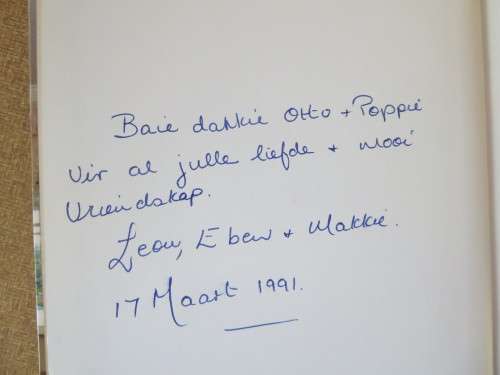 Baie dankie Otto + Poppie
Vir al julle liefde + mooi
Vriendskap.
Leon, Eben + Makkie.
17 Maart 1991.